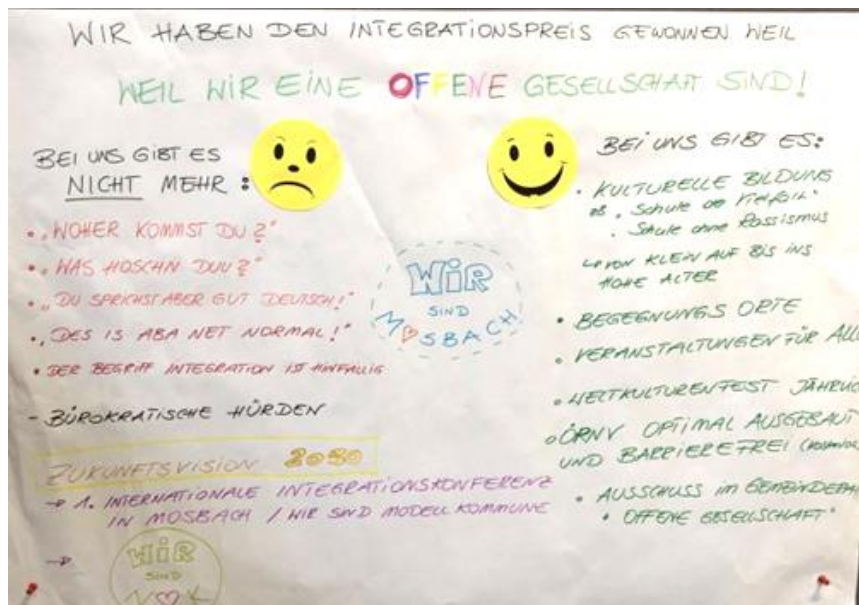 WIR HABEN DEN INTEGRATIONSPREIS GEWONNEN WEIL
WEIL WIR EINE OFFENE GESELLSCHAFT SIND!
BEI UNS GIBT ES
NICHT MEHR :
• „WOHER KOMMST DU?"
• „WAS HOSCHN DUU?"
• „DU SPRICHST ABER GUT DEUTSCH!"
• „DES IS ABA NET NORMAL!"
• DER BEGRIFF INTEGRATION IST HINFÄLLIG
- BÜROKRATISCHE HÜRDEN
ZUKUNFTSVISION 2030
→ 1. INTERNATIONALE INTEGRATIONSKONFERENZ
IN MOSBACH / WIR SIND MODELL KOMMUNE
→
WIR
SIND
N♡K
WIR
SIND
M♡SBACH
BEI UNS GIBT ES:
• KULTURELLE BILDUNG
„Schule der Vielfalt"
„Schule ohne Rassismus
↳ VON KLEIN AUF BIS INS
HOHE ALTER
• BEGEGNUNGS ORTE
• VERANSTALTUNGEN FÜR ALL
• WELTKULTURENFEST JÄHRLIC
• ÖRNV OPTIMAL AUSGEBAUT
UND BARRIEREFREI
• AUSSCHUSS IM GEMEINDERA
• OFFENE GESELLSCHAFT"